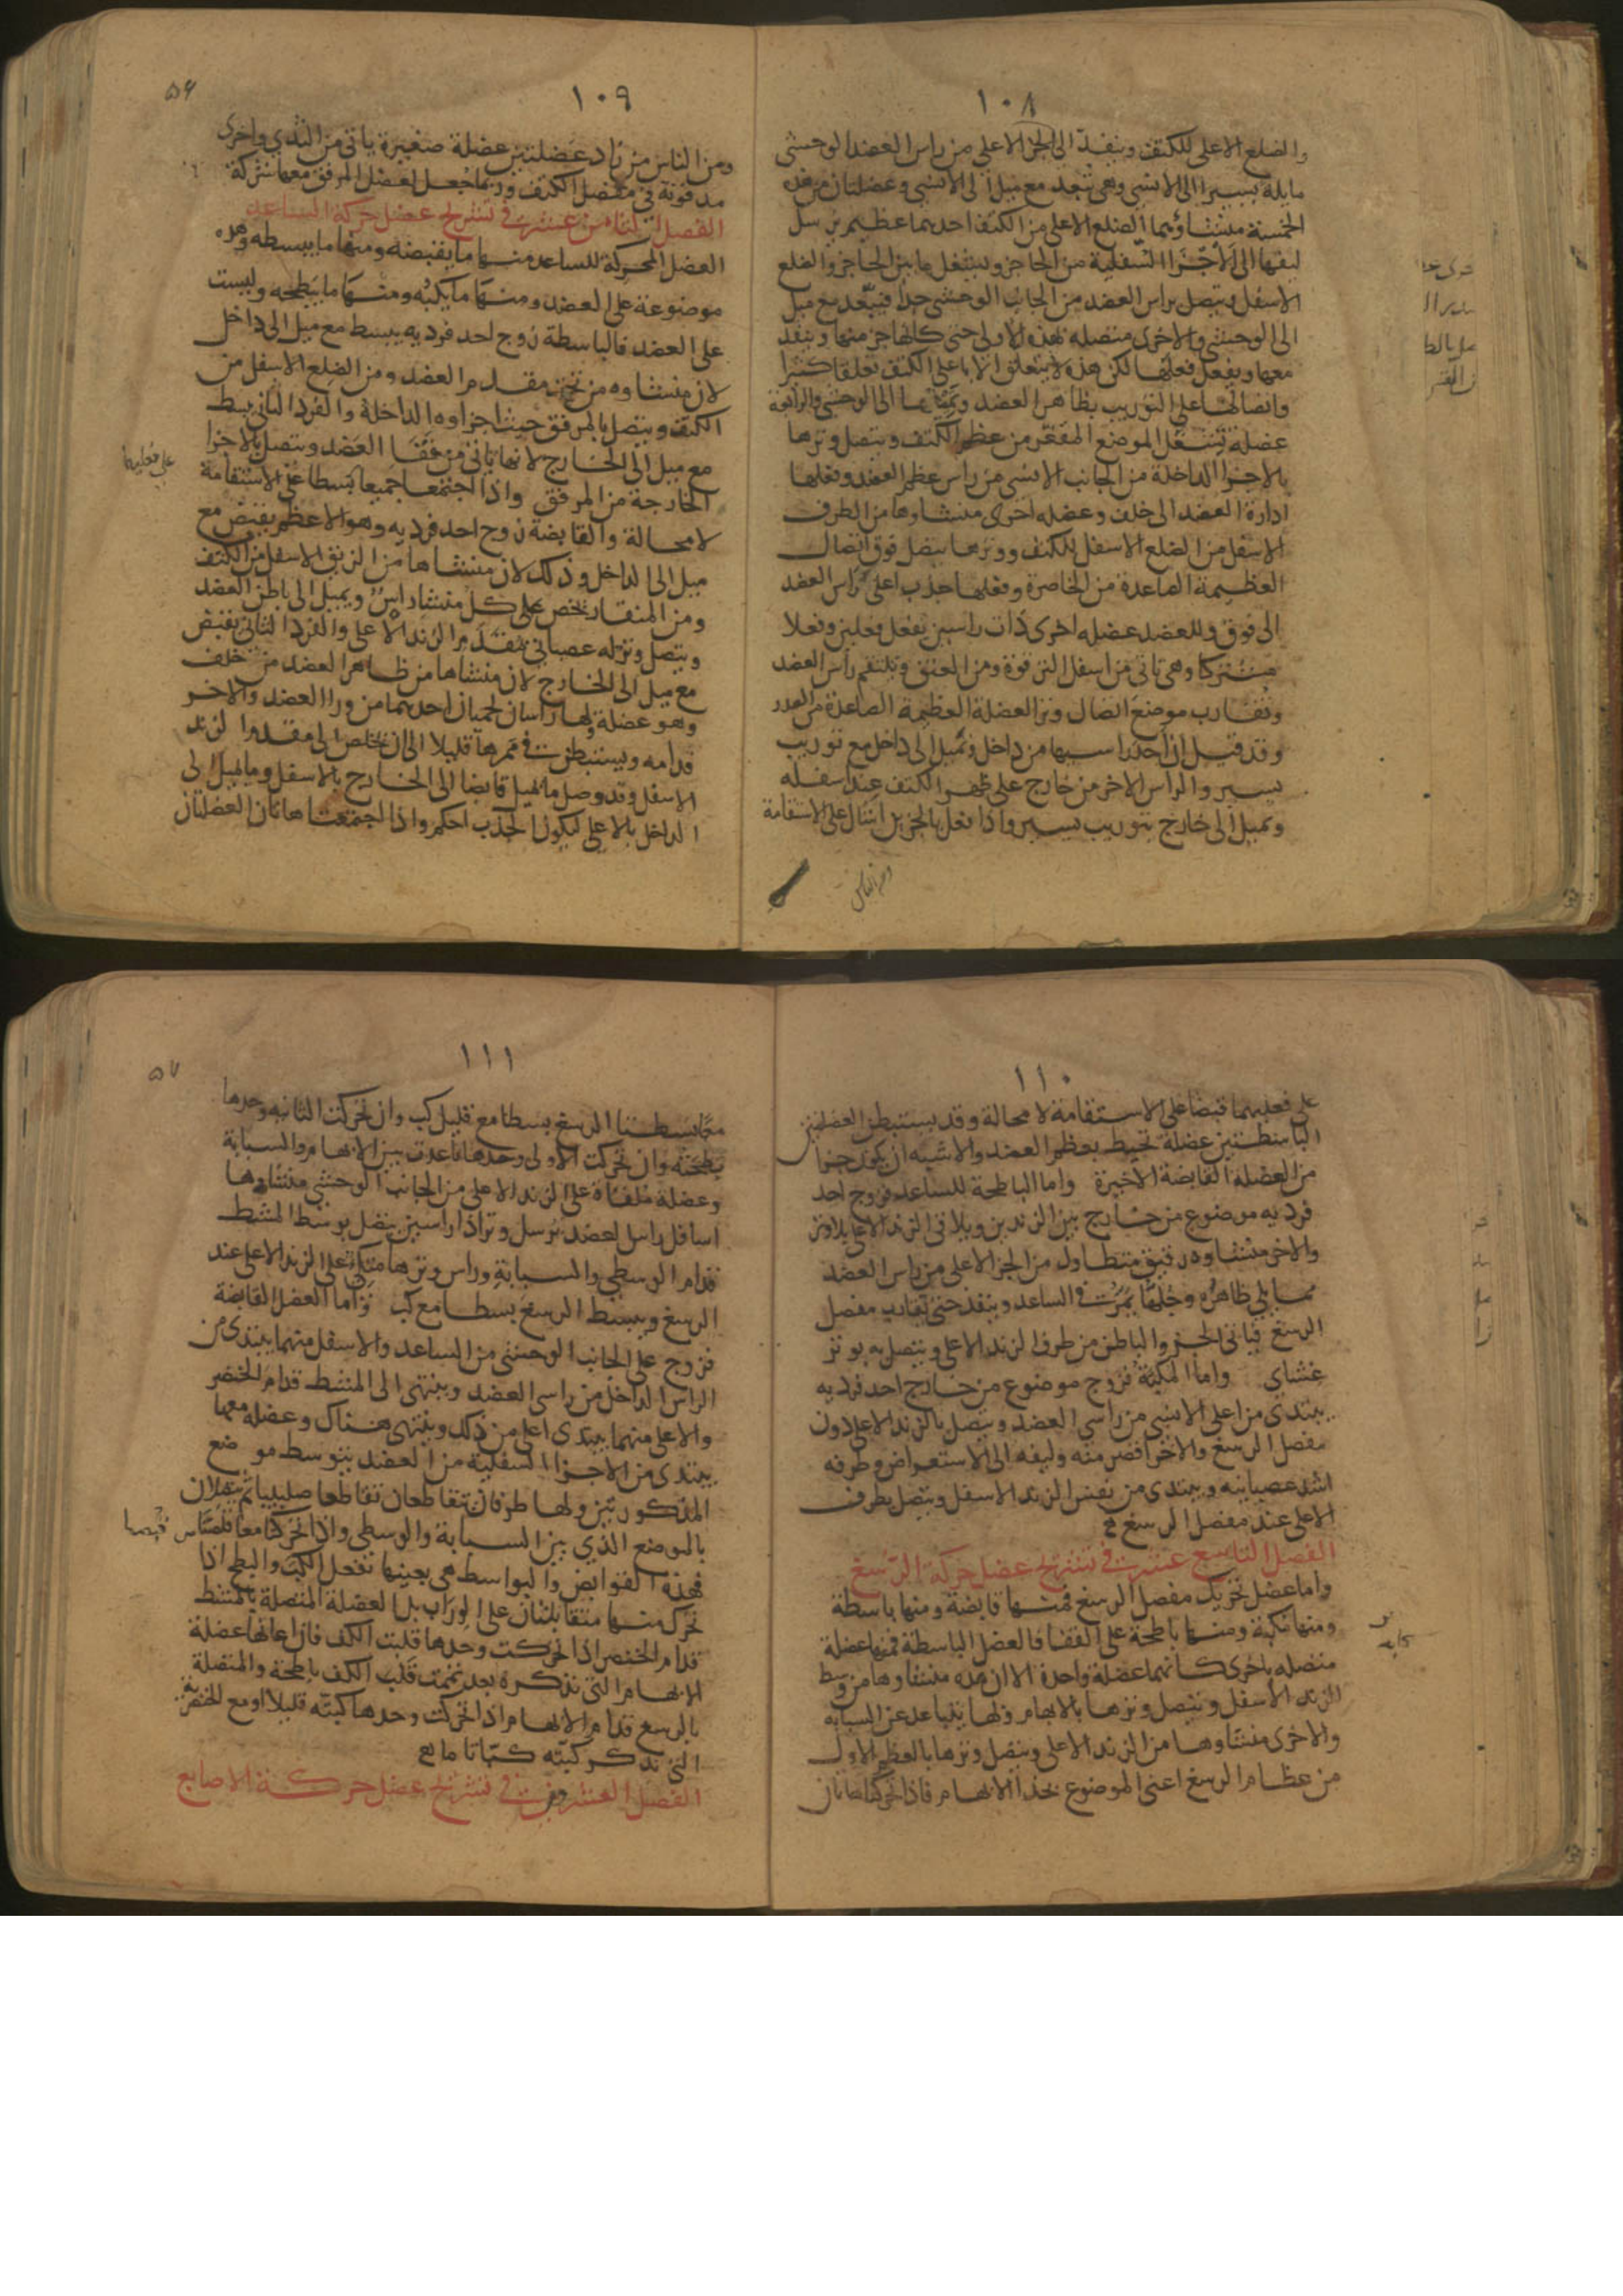 ١٠٨
والضلع الاعلى للكتف وينفذ الى الجزء الاعلى من راس العضد الوحشى
مايلة يسيرا الى الانسى وهى تبعد مع ميل الى الانسى وعضلتان من هذه
الخمسة منشاؤهما الضلع الاعلى من الكتف احديهما عظيمة ترسل
ليفها الى الاجزاء السفلية من الحاجز وتشغل ما بين الحاجز والضلع
الاسفل وتتصل براس العضد من الجانب الوحشى جدا فتبعد مع ميل
الى الوحشى والاخرى متصلة بهذه الاولى حتى كانها جزء منها وينفذ
معها ويفعل فعلها لكن هذه لا يتعلق الا باعلى الكتف تعلقا كثيرا
واتصالها على التوريب بظاهر العضد وتميلها الى الوحشى والرابعة
عضلة تشغل الموضع المقعر من عظم الكتف ويتصل وترها
بالاجزاء الداخلة من الجانب الانسى من راس عظم العضد وفعلها
ادارة العضد الى خلف وعضله اخرى منشاوها من الطرف
الاسفل من الضلع الاسفل للكتف ووترها يتصل فوق اتصال
العظيمة الصاعدة من الخاصرة وفعلها جذب اعلى راس العضد
الى فوق وللعضد عضله اخرى ذات راسين يفعل فعلين وفعلا
مشتركا وهى تاتى من اسفل الترقوة ومن العنق وتلتقم راس العضد
وتقارب موضع اتصال وتر العضلة العظيمة الصاعدة من الصدر
وقد قيل ان احد راسيها من داخل وتميل الى داخل مع توريب
يسير والراس الاخر من خارج على ظهر الكتف عند اسفله
وتميل الى خارج بتوريب يسير واذا فعل بالجزءين اشال على الاستقامة
ومن الناس
١٠٩
٥٦
ومن الناس من زاد عضلتين عضلة صغيرة ياتى من الثدي واخرى
مدفونة فى مفصل الكتف وربما جعل لعضل المرفق معها شركة
الفصل الثامن عشر فى تشريح عضل حركة الساعد
العضل المحركة للساعد منها ما يقبضه ومنها ما يبسطه وهذه
موضوعة على العضد ومنها ما يكبه ومنها ما يبطحه وليست
على العضد فالباسطة زوج احد فرديه يبسط مع ميل الى داخل
لان منشاوه من تحت مقدم العضد ومن الضلع الاسفل من
الكتف ويتصل بالمرفق حيث اجزاوه الداخلة والفرد الثانى يبسط
مع ميل الى الخارج لانها ياتى من قفا العضد ويتصل بالاجزا
الخارجة من المرفق واذا اجتمعا جميعا بسطا على الاستقامة
لا محالة والقابضة زوج احد فرديه وهو الاعظم يقبض مع
ميل الى الداخل وذلك لان منشاها من الزيق الاسفل من الكتف
ومن المنقار يخص على كل منشا راس ويميل الى باطن العضد
ويتصل وتر له عصبانى بمقدم الزند الاعلى والفرد الثانى يقبض
مع ميل الى الخارج لان منشاها من ظاهر العضد من خلف
وهو عضلة ولها راسان لحميان احدهما من ورا العضد والاخر
قدامه ويستبطن فى ممرها قليلا الى ان تخلص الى مقدم الزند
الاسفل وقد وصل ما يميل قابضا الى الخارج بالاسفل وما يميل الى
الداخل بالاعلى ليكون الجذب احكم واذا اجتمعت هاتان العضلتان
على فعليهما
١١٠
على فعليهما قبضا على الاستقامة لا محالة وقد يستبطن العضلتين
الباسطتين عضلة تحيط بعظم العضد والاشبه ان يكون جزا
من العضلة القابضة الاخيرة واما الباطحة للساعد فزوج احد
فرديه موضوع من خارج بين الزندين ويلاقى الزند الاعلى بلا وتر
والاخر منشاوه رقيق متطاول من الجزا الاعلى من راس العضد
مما يلي ظاهره وجلها يمر فى الساعد وينفذ حتى يقارب مفصل
الرسغ فياتى الجزو الباطن من طرف الزند الاعلى ويتصل به بوتر
غشاى واما المكبة فزوج موضوع من خارج احد فرديه
يبتدى من اعلى الانسى من راسي العضد ويتصل بالزند الاعلا دون
مفصل الرسغ والاخر اقصر منه وليفه الى الاستعراض وطرفه
اشد عصبانيه ويبتدى من نفس الزند الاسفل ويتصل بطرف
الاعلى عند مفصل الرسغ
الفصل التاسع عشر فى تشريح عضل حركة الرسغ
واما عضل تحريك مفصل الرسغ فمنها قابضة ومنها باسطة
ومنها مكبة ومنها باطحة على القفا فالعضل الباسطة فمنها عضلة
متصله باخرى كانهما عضلة واحدة الا ان هذه منشاوها من وسط
الزند الاسفل ويتصل وترها بالابهام ولها يتباعد عن السبابة
والاخرى منشاوها من الزند الاعلى ويتصل وترها بالعظم الاول
من عظام الرسغ اعنى الموضوع بحذا الابهام فاذا تحركتا هاتان
١١١
٥٧
معا بسطتا الرسغ بسطا مع قليل كب وان تحركت الثانيه وحدها
بطحته وان تحركت الاولى وحدها باعدت بين الابهام والسبابة
وعضلة ملقاة على الزند الاعلى من الجانب الوحشى منشاوها
اسافل راس العضد ترسل وترا ذا راسين يتصل بوسط المشط
قدام الوسطى والسبابة وراس وترها متكئ على الزند الاعلى عند
الرسغ ويبسط الرسغ بسطا مع كب واما العضل القابضة
فزوج على الجانب الوحشى من الساعد والاسفل منهما يبتدى من
الراس الداخل من راسى العضد وينتهى الى المشط قدام الخنصر
والاعلى منهما يبتدى اعلى من ذلك وينتهى هناك وعضله معها
يبتدى من الاجزا السفلية من العضد يتوسط موضع
المذكورتين ولها طرفان يتقاطعان تقاطعا صليبيا ثم يتصلان
بالموضع الذي بين السبابة والوسطى واذا تحركتا معا قبضتا
فهذه القوابض والبواسط هى بعينها تفعل الكب والبطح اذا
تحرك منها متقابلتان على الوراب بل العضلة المتصلة بالمشط
قدام الخنصر اذا تحركت وحدها قلبت الكف فان اعانها عضلة
الابهام التى نذكره بعد تممت قلب الكف باطحة والمتصلة
بالرسغ قدام الابهام اذا تحركت وحدها كبته قليلا او مع الخنصرية
التى نذكر كبته كبا تاما
الفصل العشرون فى تشريح عضل حركة الاصابع